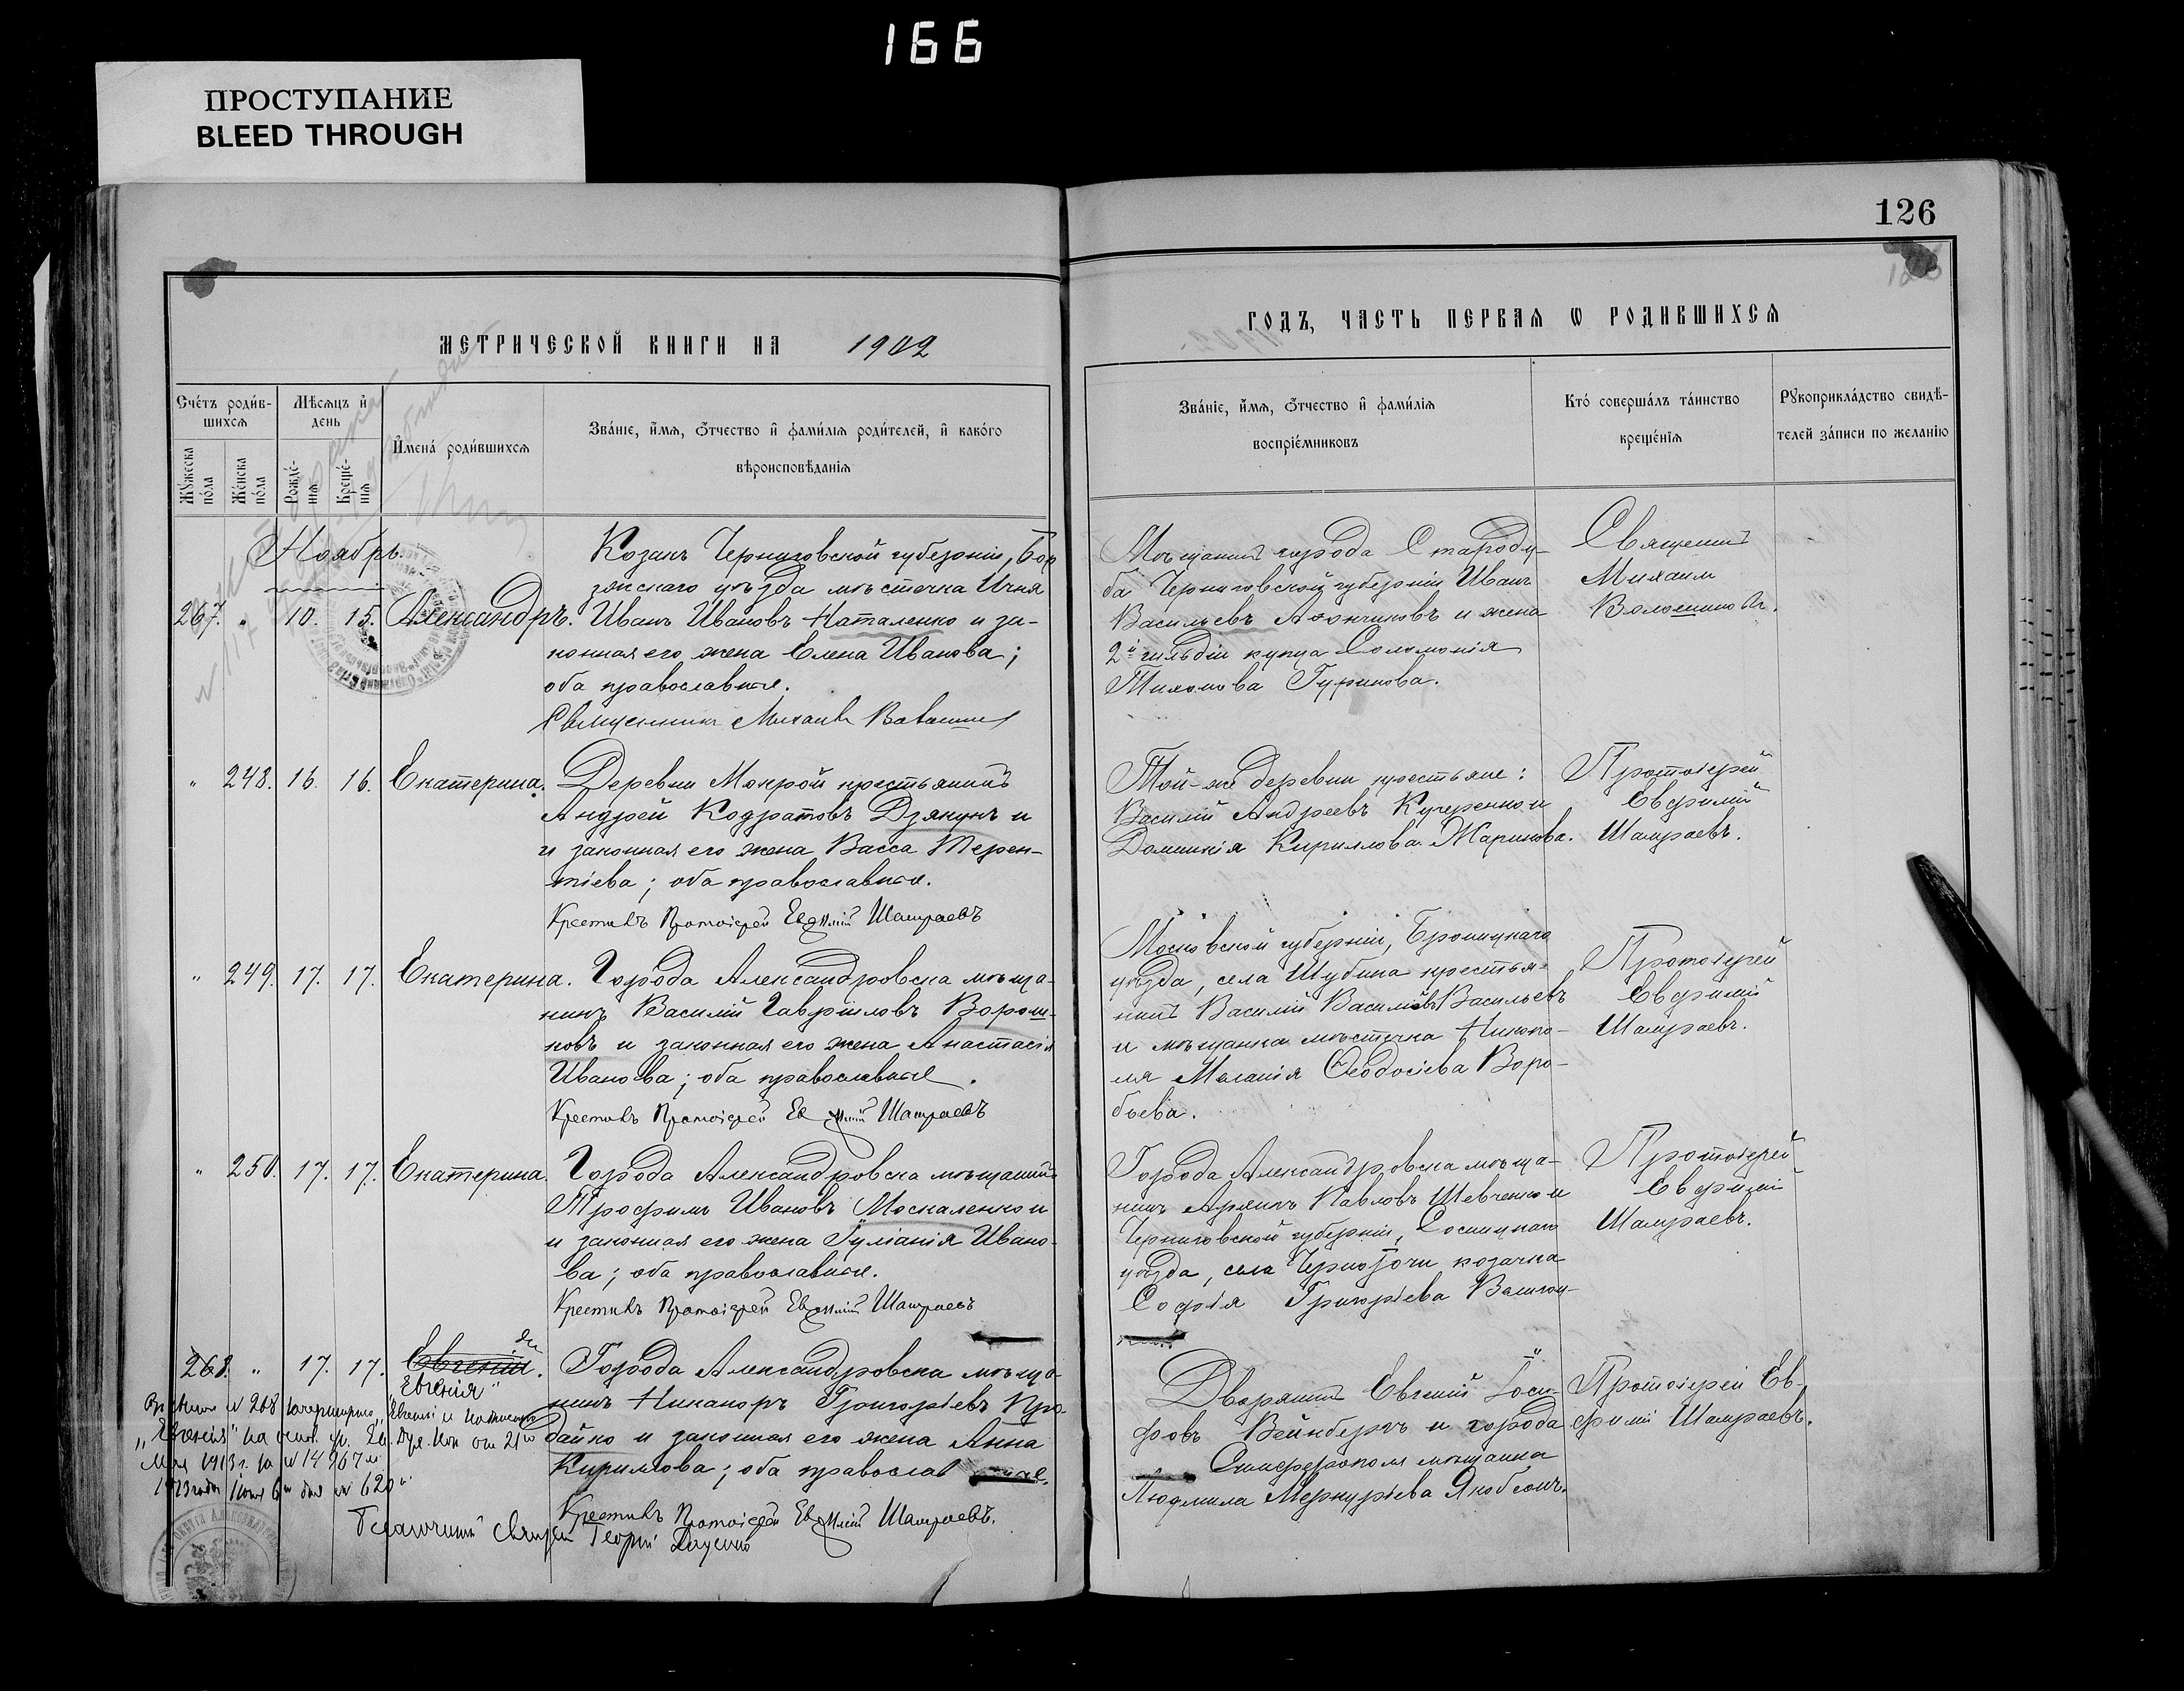 166
ПРОСТУПАНИЕ
BLEED THROUGH
126
МЕТРИЧЕСКОЙ КНИГИ НА 1902
ГОДЪ, ЧАСТЬ ПЕРВАЯ Ѡ РОДИВШИХСЯ
Счетъ родив-
шихся
Мѣсяцъ и
день
Мужеска
пола
Женска
пола
Рожде-
нія
Креще-
нія
Имена родившихся
Званіе, имя, отчество и фамилія родителей, и какого
вѣроисповѣданія
Званіе, имя, отчество и фамилія
воспріемниковъ
Кто совершалъ таинство
крещенія
Рукоприкладство свидѣ-
телей записи по желанію
Ноябрь.
267. " 10. 15. Александръ.
Козакъ Черниговской губерніи, Бор
зянскаго уѣзда мѣстечка Ичня
Иванъ Ивановъ Наталенко и за-
конная его жена Елена Иванова;
оба православные.
Священникъ Михаилъ
Мѣщанинъ города Староду-
ба Черниговской губерніи Иванъ
Васильевъ и жена
2й гильдіи купца Соломонія
Тихонова Гуринова.
Священникъ
Михаилъ
Волошиновъ.
" 248. 16. 16. Екатерина.
Деревни Мокрой крестьянинъ
Андрей Кодратовъ Дзякунъ и
и законная его жена Васса Терен-
тіева; оба православные.
Крестилъ Протоіерей Евфимій Шамраевъ
Той-же деревни крестьяне:
Василій Андреевъ Кучеренко и
Домникія Кириллова Жаринова.
Протоіерей
Евфимій
Шамраевъ.
" 249. 17. 17. Екатерина.
Города Александровска мѣща-
нинъ Василій Гавріиловъ Ворон-
ковъ и законная его жена Анастасія
Иванова; оба православные.
Крестилъ Протоіерей Евфимій Шамраевъ
Московской губерніи, Бронницкаго
уѣзда, села Шубина крестья-
нинъ Василій Васильевъ Васильевъ
и мѣщанка мѣстечка Никопо-
ля Меланія Ѳеодосіева Воро-
бьева.
Протоіерей
Евфимій
Шамраевъ.
" 250. 17. 17. Екатерина.
Города Александровска мѣщанинъ
Трофимъ Ивановъ Москаленко и
и законная его жена Іуліанія Ивано-
ва; оба православные.
Крестилъ Протоіерей Евфимій Шамраевъ
Города Александровска мѣща-
нинъ Павловъ Шевченко и
Черниговской губерніи, Сосницкаго
уѣзда, села козачка
Софія Григорьева
Протоіерей
Евфимій
Шамраевъ.
268. " 17. 17. Евгеній.
"Евгенія"
Города Александровска мѣща-
нинъ Никаноръ Григорьевъ Про-
дайко и законная его жена Анна
Кириллова; оба православ
Крестилъ Протоіерей Евфимій Шамраевъ.
№ 268 "Евгеній и
"Евгенія" на 21го
Мая 1913 г. за № 14967
1913 года Іюня 6го дня № 620
Георгій
Дворянинъ Евгеній Іоси-
фовъ Вейнбергъ и города
Симферополя мѣщанка
Людмила Меркурьева Якобсонъ.
Протоіерей Ев-
фимій Шамраевъ.